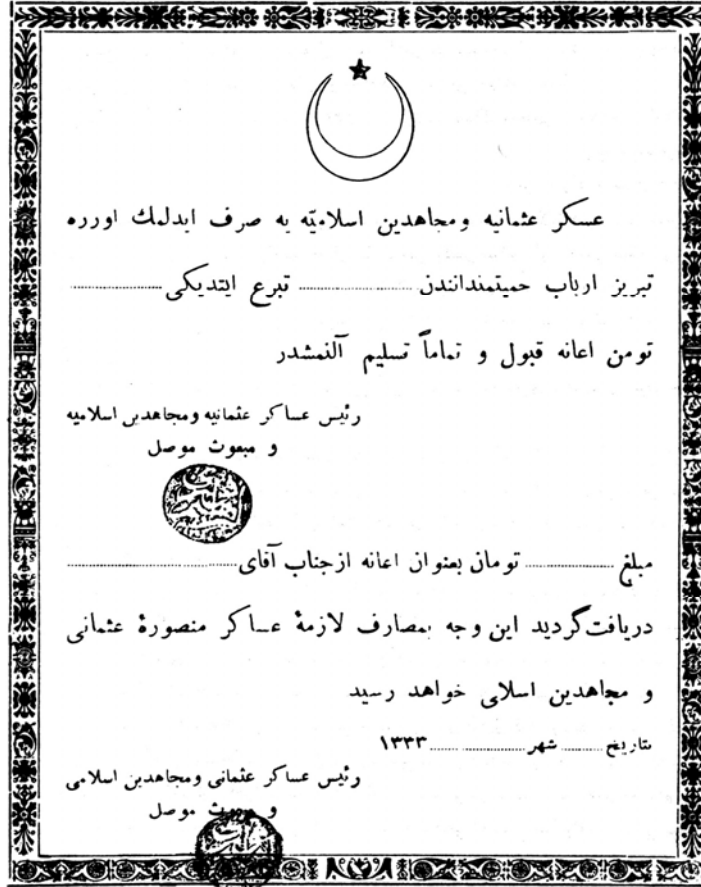 عسكر عثمانيه ومجاهدين اسلاميّه به صرف ايدلمك اوزره
تبريز ارباب حميتمندانندن ........ تبرع ايتديكى ........
تومن اعانه قبول و تماماً تسليم آلنمشدر
رئيس عساكر عثمانيه ومجاهدين اسلاميه
و مبعوث موصل
مبلغ ........ تومان بعنوان اعانه از جناب آقاى ........
دريافت گرديد اين وجه بمصارف لازمهٔ عساكر منصورهٔ عثمانى
و مجاهدين اسلامى خواهد رسيد
بتاريخ ........ شهر ........ ١٣٣٣
رئيس عساكر عثمانى ومجاهدين اسلامى
و مبعوث موصل